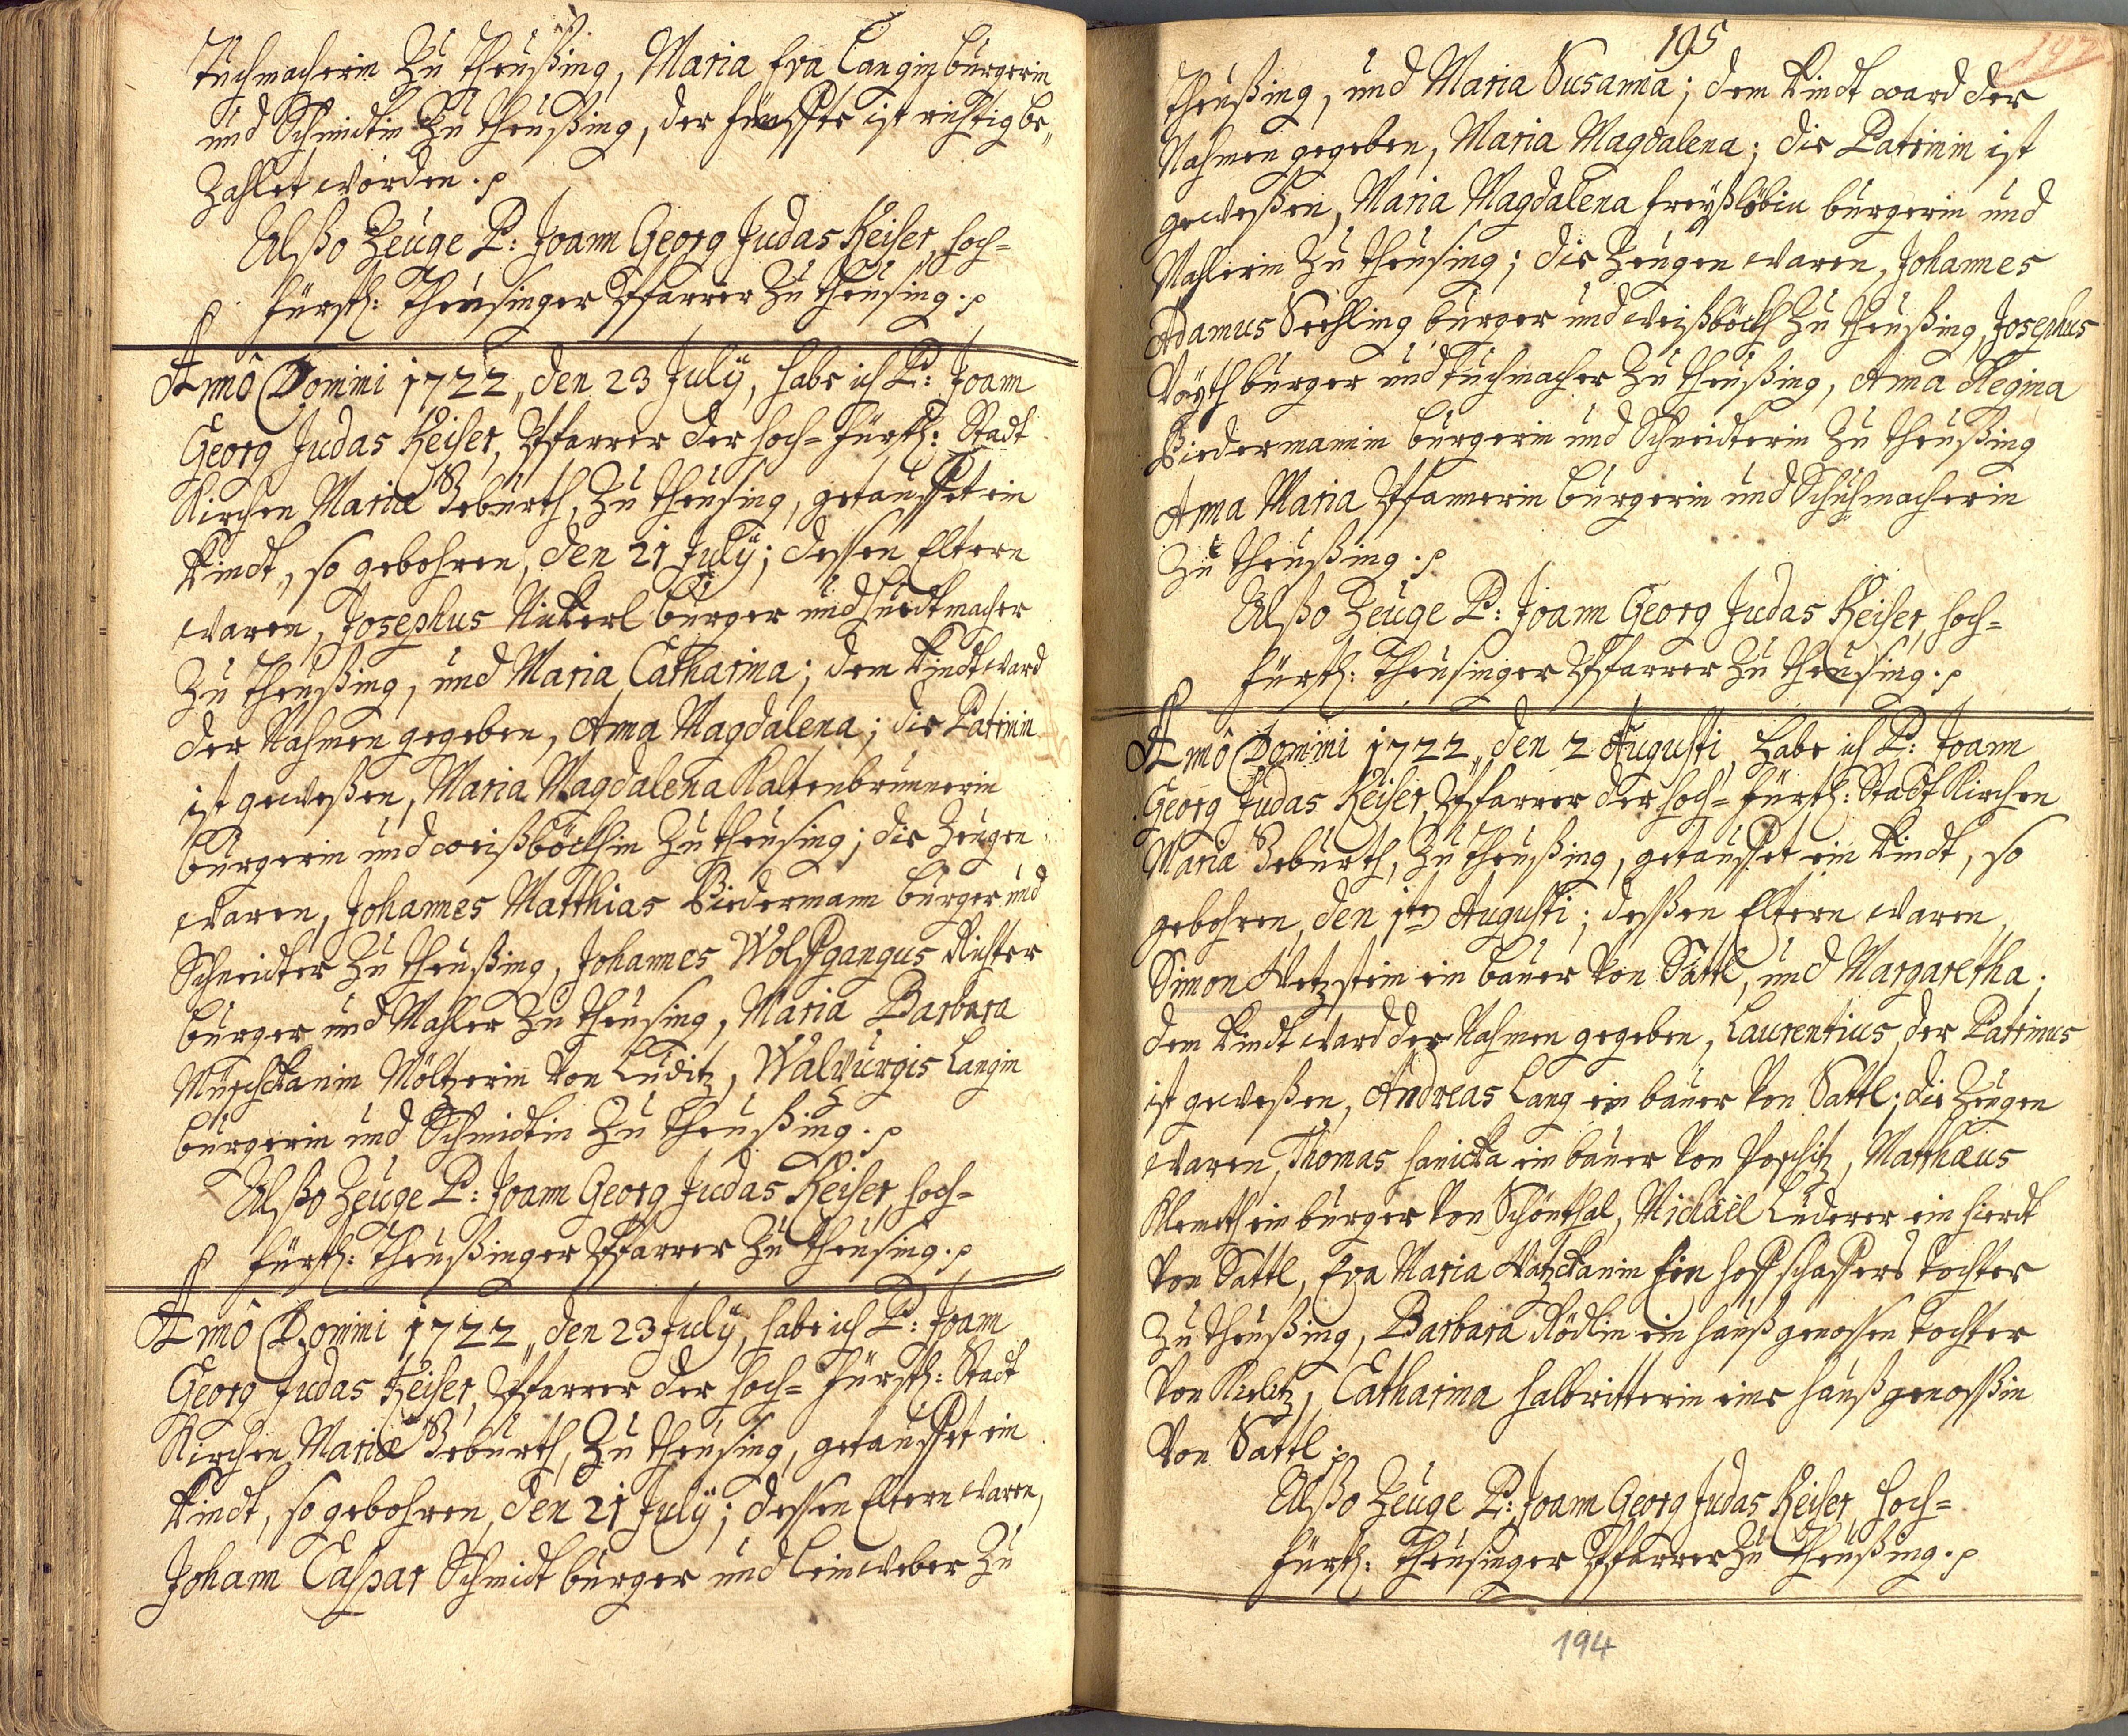 Tuchmacherin Zu Theußing, Maria Eva Langin bürgerin
und Schmidtin Zu Theußing, der ist richtig be„
Zahlet worden.
Alßo Zeuge P: Joann Georg Judas Keiser, Hoch-
fürstl: Theusinger Pfarrer Zu Theusing.
Annô Domini 1722„ den 23 July, habe ich P: Joann
Georg Judas Keiser, Pfarrer der Hoch-fürstl: Stadt
Kirchen Mariæ Gebürth, Zu Theusing, getauffet ein
Kindt, so gebohren, den 21 July; dessen Eltern
waren, Josephus Nickerl bürger und Huedtmacher
Zu Theußing, und Maria Catharina; dem Kindt ward
der Nahmen gegeben, Anna Magdalena; die Patrinin
ist geweßen, Maria Magdalena Kaltenbrunnerin
bürgerin und weißböckhin Zu Theusing; die Zeugen
waren, Johannes Matthias Biedermann bürger und
Schneidter Zu Theußing, Johannes Wolffgangus Richter
bürger und Mahler Zu Theusing, Maria Barbara
Möltzerin von Luditz, Walburgis Langin
bürgerin und Schmidtin Zu Theußing.
Alßo Zeuge P: Joann Georg Judas Keiser, Hoch-
fürstl: Theußinger Pfarrer Zu Theusing.
Annô Domini 1722„ den 23 July, habe ich P: Joann
Georg Judas Keiser, Pfarrer der Hoch-fürstl: Stadt
Kirchen Mariæ Gebürth, Zu Theusing, getauffet ein
Kindt, so gebohren, den 21 July; dessen Eltern waren,
Johann Caspar Schmidt bürger und Leinweber Zu
195
197
Theußing, und Maria Susanna; dem Kindt ward der
Nahmen gegeben, Maria Magdalena; die Patrinin ist
geweßen, Maria Magdalena Freyßlöbin bürgerin und
Mahlerin Zu Theusing; die Zeugen waren, Johannes
Adamus Seehling bürger und weißböckh Zu Theußing, Josephus
Voyth bürger und Tuchmacher Zu Theußing, Anna Regina
Biedermannin bürgerin und Schneidterin Zu Theußing
Anna Maria Pfannerin bürgerin und Schuhmacherin
Zu Theußing.
Alßo Zeuge P: Joann Georg Judas Keiser, Hoch-
fürstl: Theusinger Pfarrer Zu Theusing.
Annô Domini 1722„ den 2 Augusti, habe ich P: Joann
Georg Judas Keiser, Pfarrer der Hoch-fürstl: Stadt Kirchen
Mariæ Gebürth, Zu Theußing, getauffet ein Kindt, so
gebohren, den 1ten Augusti; deßen Eltern waren,
Simon Wetzstein ein bauer von Sattl, und Margaretha;
dem Kindt ward der Nahmen gegeben, Laurentius, der Patrinus
ist geweßen, Andreas Lang ein bauer von Sattl; die Zeugen
waren, Thomas Hanicka ein bauer von Poschitz, Matthæus
Klemeth ein bürger von Schönthal, Michaël Luderer ein Hierdt
von Sattl, Eva Maria ein Hoffschaffers Tochter
Zu Theußing, Barbara Rödlin ein haußgenossen Tochter
von Kurlitz, Catharina Halbritterin eine haußgenoßin
von Sattl.
Alßo Zeuge P: Joann Georg Judas Keiser, Hoch-
fürstl: Theusinger Pfarrer Zu Theußing.
194